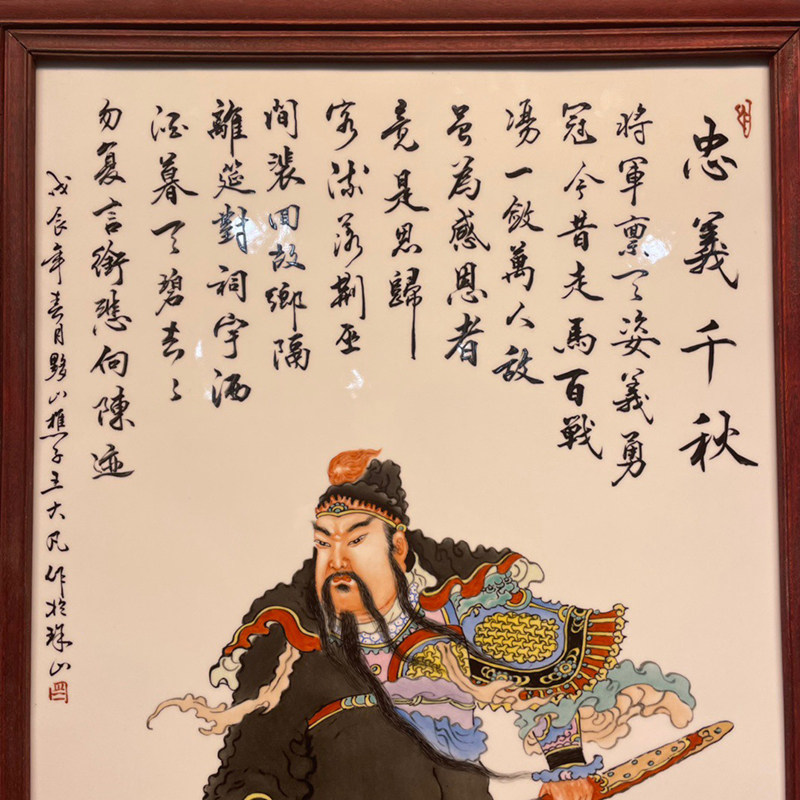 忠義千秋
将軍禀天姿義勇
冠今昔走馬百戰
場一劍萬人敌
虽為感恩者
竟是思歸
客流落荆巫
间裴回故鄉隔
離筵對祠宇洒
酒暮天碧去々
勿复言銜悲向陳迹
戊辰年春月黟山樵子王大凡作於珠山